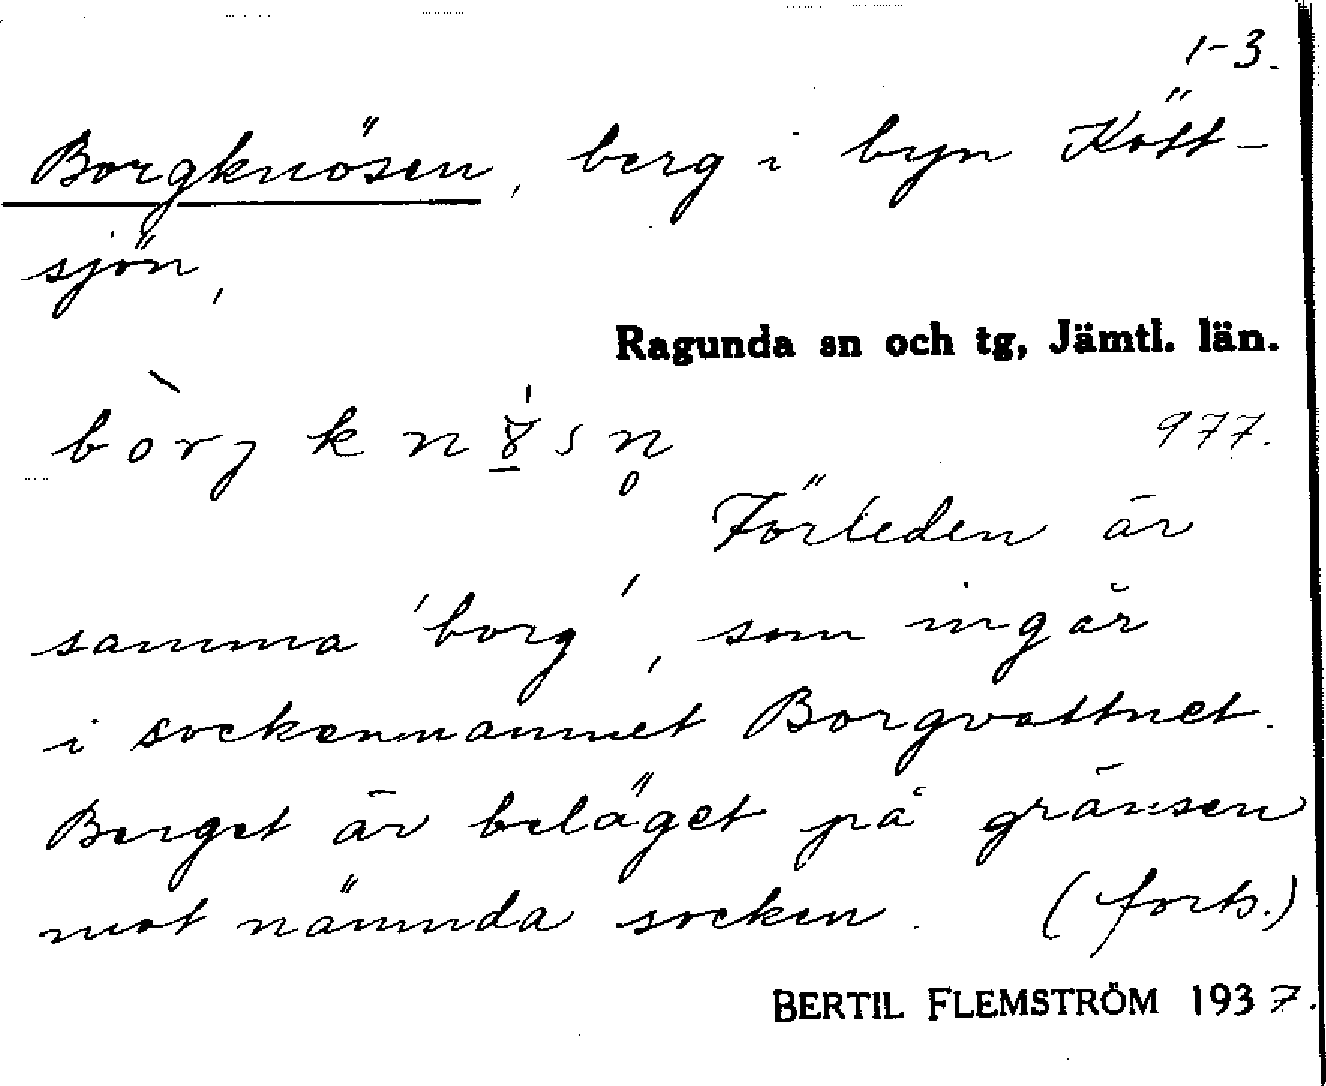 1-3.
Borgknösen, berg i byn Kött-
sjön,
Ragunda sn och tg, Jämtl. län.
977.
Förleden är
samma 'borg', som ingår
i sockennamnet Borgvattnet.
Berget är beläget på gränsen
mot nämnda socken. (forts.)
BERTIL FLEMSTRÖM 1937.